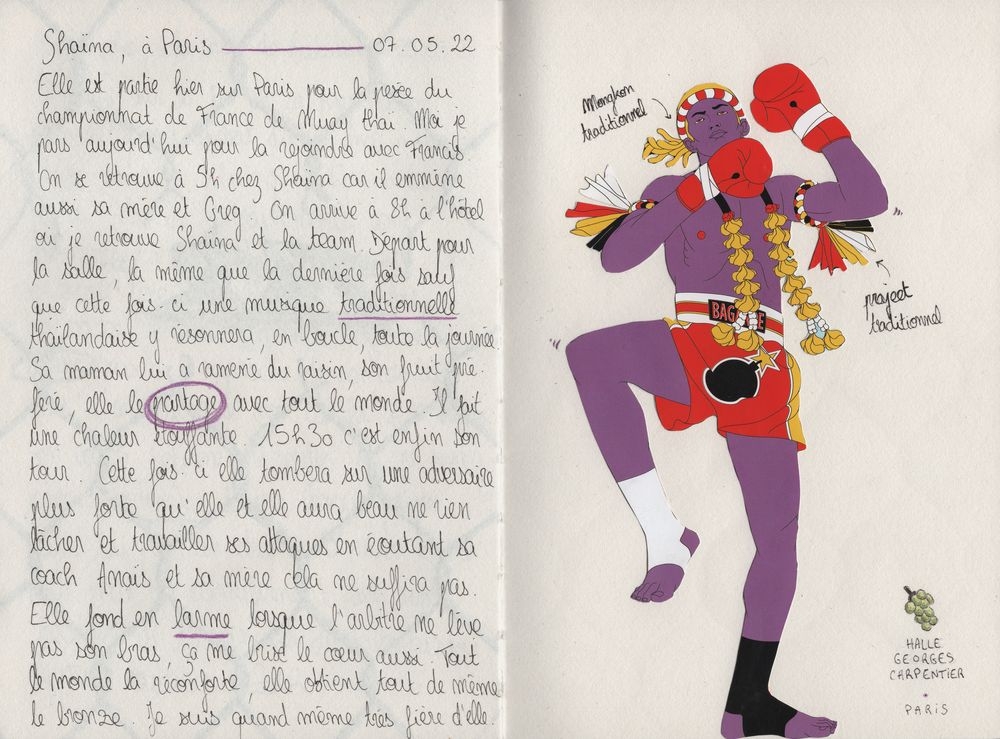 Shaïna, à Paris 07.05.22
Elle est partie hier sur Paris pour la pesée du
championnat de France de Muay thaï. Moi je
pars aujourd'hui pour la rejoindre avec Francis.
On se retrouve à 5h chez Shaïna car il emmène
aussi sa mère et Greg. On arrive à 8h à l'hôtel
où je retrouve Shaïna et la team. Départ pour
la salle, la même que la dernière fois sauf
que cette fois-ci une musique traditionnelle
thaïlandaise y résonnera, en boucle, toute la journée.
Sa maman lui a ramené du raisin, son fruit pré-
féré, elle le partage avec tout le monde. Il fait
une chaleur étouffante. 15h30 c'est enfin son
tour. Cette fois-ci elle tombera sur une adversaire
plus forte qu'elle et elle aura beau ne rien
lâcher et travailler ses attaques en écoutant sa
coach Anaïs et sa mère cela ne suffira pas.
Elle fond en larme lorsque l'arbitre ne lève
pas son bras, ça me brise le cœur aussi. Tout
le monde la réconforte, elle obtient tout de même
le bronze. Je suis quand même très fière d'elle.
Mongkon
traditionnel
prajeet
traditionnel
HALLE
GEORGES
CARPENTIER
PARIS